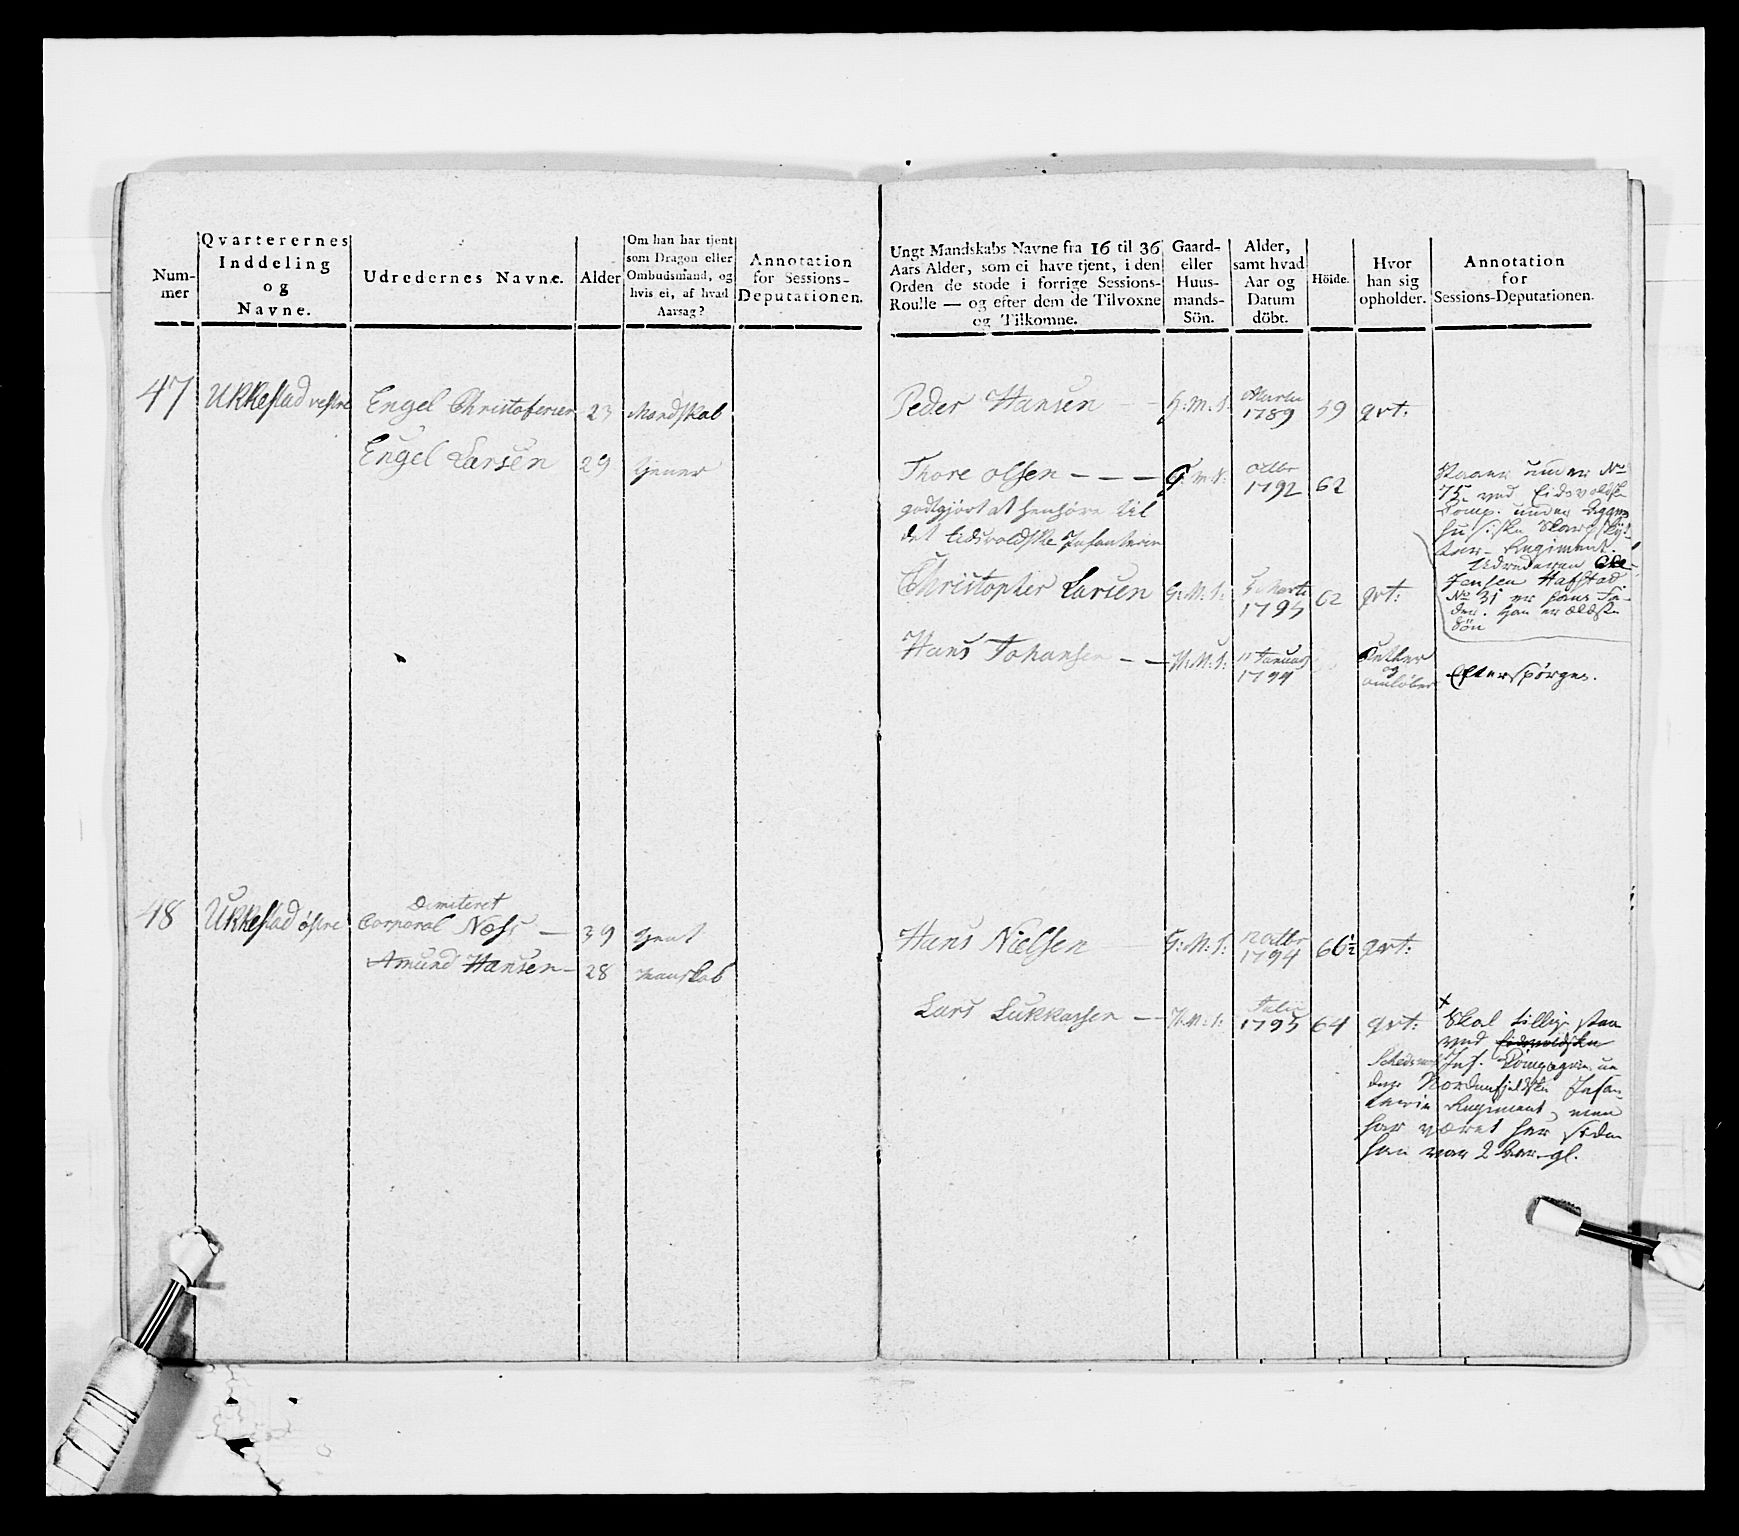 Num-
mer
Qvarterernes
Inddeling
og
Navne.
Udredernes Navne.
Alder
Om han har tjent
som Dragon eller
Ombudsmand, og
hvis ei, af hvad
Aarsag?
Annotation
for Sessions-
Deputationen.
47 Ukkestad vestre Engel Christofersen 23 Mandskab
Engel Larsen 29 tjener
48 Ukkestad østre
Dimiteret
Corporal Næss — 39 tjent
Amund Hansen - 28 manskab
Ungt Mandskabs Navne fra 16 til 36
Aars Alder, som ei have tjent, i den
Orden de stode i forrige Sessions-
Roulle — og efter dem de Tilvoxne
og Tilkomne.
Gaard-
eller
Huus-
mands-
Sön.
Alder,
samt hvad
Aar og
Datum
döbt.
Höide.
Hvor
han sig
opholder.
Annotation
for
Sessions-Deputationen.
Peder Hansen H: M: S: Martii 1789 59 qvt:
Thore Olsen - - - G: M: S: Octbr 1792 62
godtgjort at henhøre til
det Eidsvoldske Infanterie
Staaer under No
75 ved Eidsvoldske
Comp. under Agger
husiske Skarpskyt-
ter-Regiment.
Udrederen Ole
Jensen Hafstad
No 31 er hans Fa-
der. han er ældste
Søn
Christopher Larsen G: M: S: Martii 1795 62 qvt:
Hans Johansen - - H: M: S: Januar 1794
og
omløber
Efterspørges.
Hans Nielsen G: M: S: 12 Octbr 1794 66½ qvt:
Lars Lukkassen - - H: M: S: Julii 1795 64 qvt:
Skal tillige staa
ved Eidsvoldske
Inf. Compagnie un
der Nordenfjeldske Infan-
terie Regiment, men
har været her siden
han var 2 Aar gl.